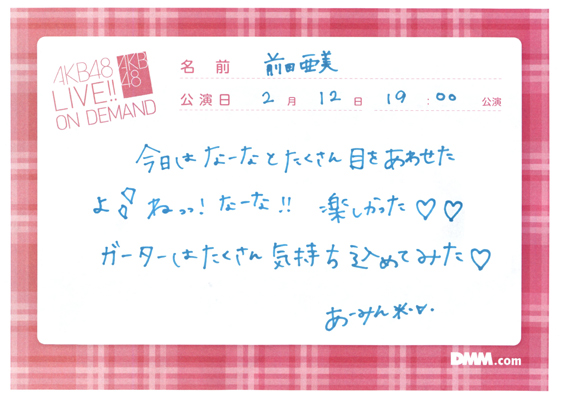 AKB48
LIVE!!
ON DEMAND
AKB
48
名前 前田亜美
公演日 2月 12日 19:00 公演
今日はなーなとたくさん目をあわせた
よ♪ ねっっ!なーな!! 楽しかった♡♡
ガーターはたくさん気持ち込めてみた♡
あーみん
DMM.com